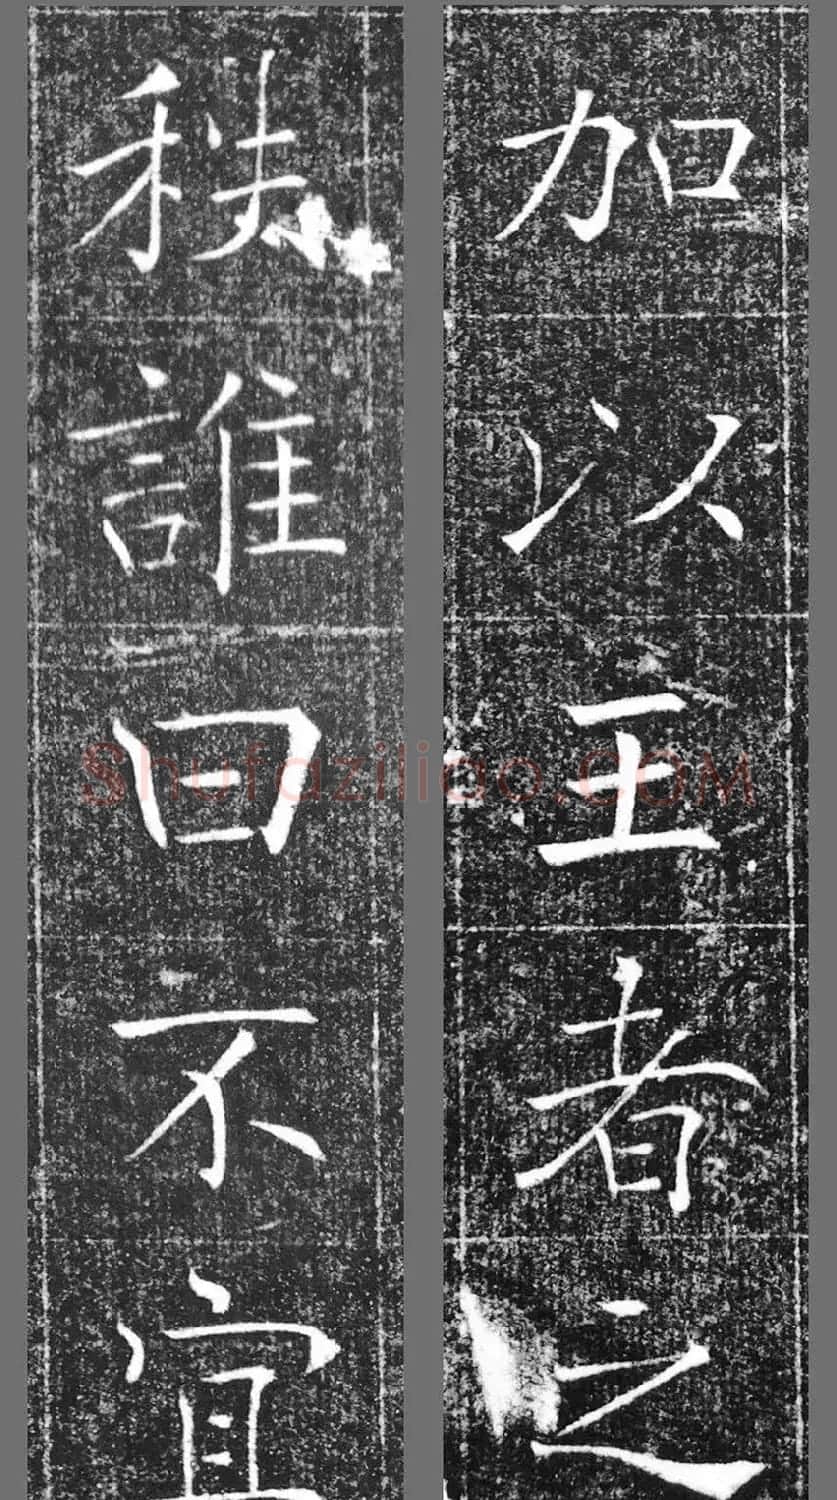 加以王者之
秩誰曰不宜
Shufaziliao.COM